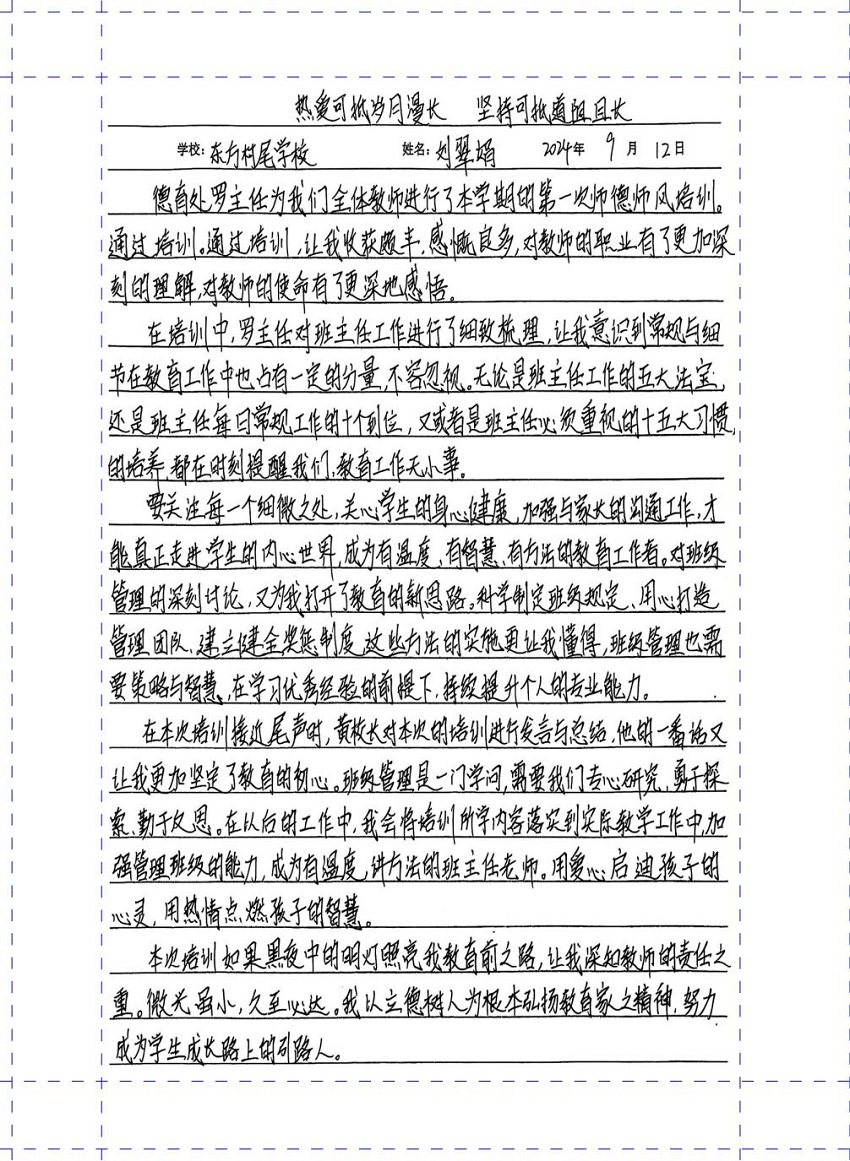 热爱可抵岁月漫长 坚持可抵道阻且长
学校：东方村尾学校 姓名：刘翠娟 2024年 9月 12日
德育处罗主任为我们全体教师进行了本学期的第一次师德师风培训。
通过培训。通过培训，让我收获颇丰，感慨良多，对教师的职业有了更加深
刻的理解，对教师的使命有了更深地感悟。
在培训中，罗主任对班主任工作进行了细致梳理，让我意识到常规与细
节在教育工作中也占有一定的分量，不容忽视。无论是班主任工作的五大法宝，
还是班主任每日常规工作的十个到位，又或者是班主任必须重视的十五大习惯，
的培养，都在时刻提醒我们，教育工作无小事。
要关注每一个细微之处，关心学生的身心健康，加强与家长的沟通工作，才
能真正走进学生的内心世界，成为有温度、有智慧、有方法的教育工作者。对班级
管理的深刻讨论，又为我打开了教育的新思路。科学制定班级规定、用心打造
管理团队、建立健全奖惩制度，这些方法的实施更让我懂得，班级管理也需
要策略与智慧，在学习优秀经验的前提下，持续提升个人的专业能力。
在本次培训接近尾声时，黄校长对本次的培训进行发言与总结，他的一番话又
让我更加坚定了教育的初心。班级管理是一门学问，需要我们专心研究，勇于探
索，勤于反思。在以后的工作中，我会将培训所学内容落实到实际教学工作中，加
强管理班级的能力，成为有温度，讲方法的班主任老师。用爱心启迪孩子的
心灵，用热情点燃孩子的智慧。
本次培训如果黑夜中的明灯照亮我教育前之路，让我深知教师的责任之
重。微光虽小，久至必达。我以立德树人为根本弘扬教育家之精神，努力
成为学生成长路上的引路人。